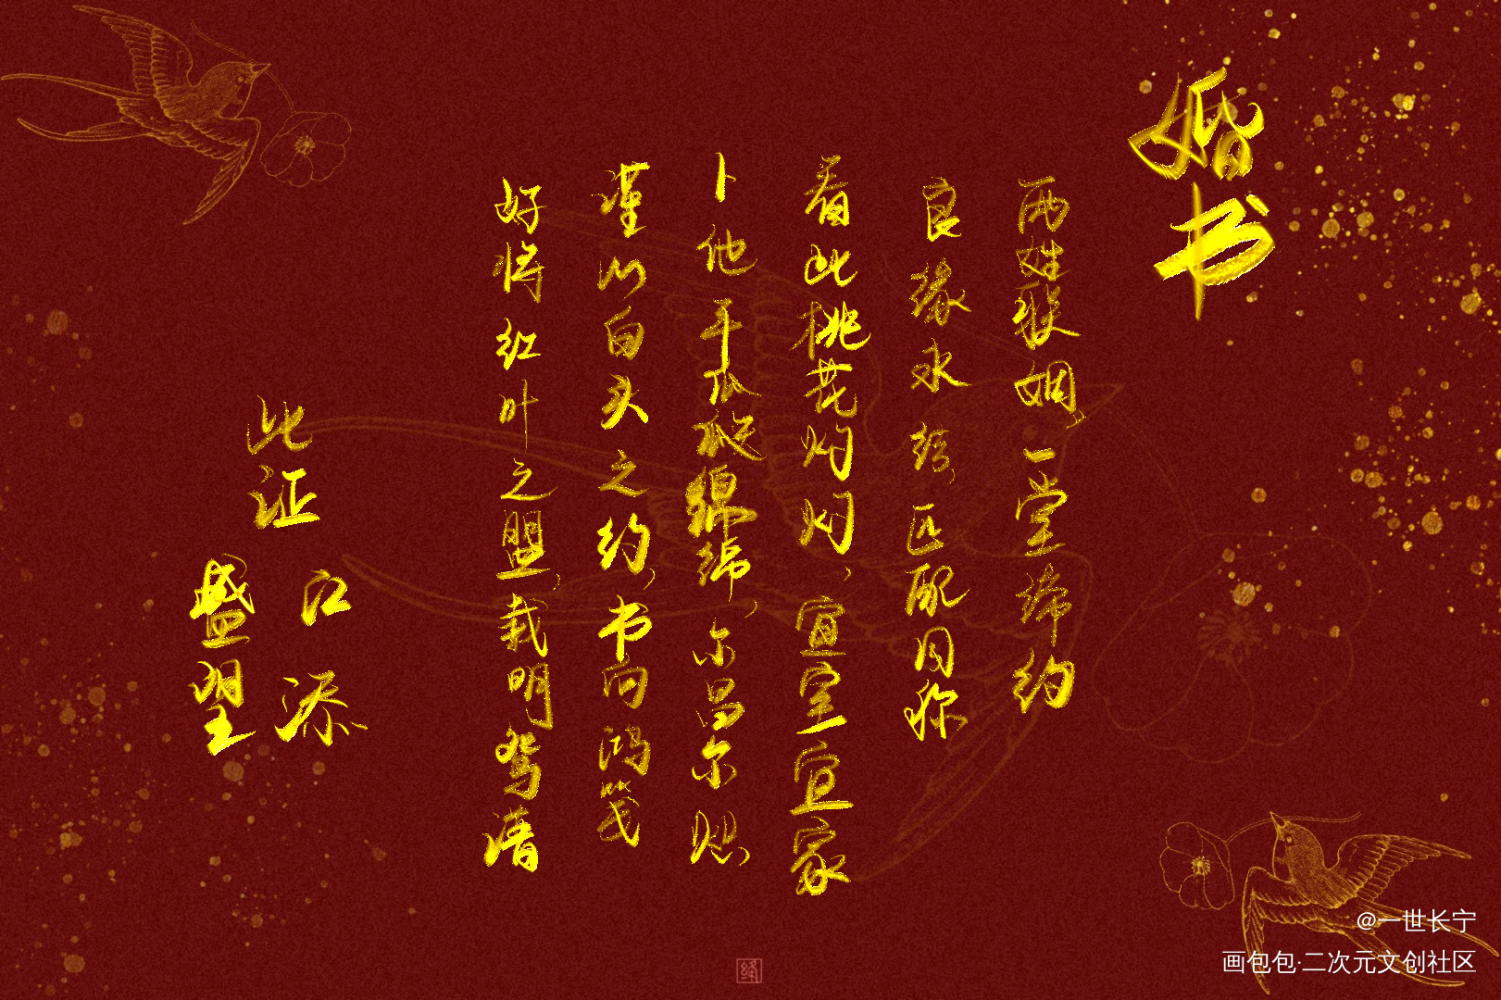 婚书
两姓联姻，一堂缔约
良缘永结，匹配同称
看此桃花灼灼，宜室宜家
卜他年瓜瓞绵绵，尔昌尔炽
谨以白头之约，书向鸿笺
好将红叶之盟，载明鸳谱
此证
江添
盛望
@一世长宁
画包包·二次元文创社区